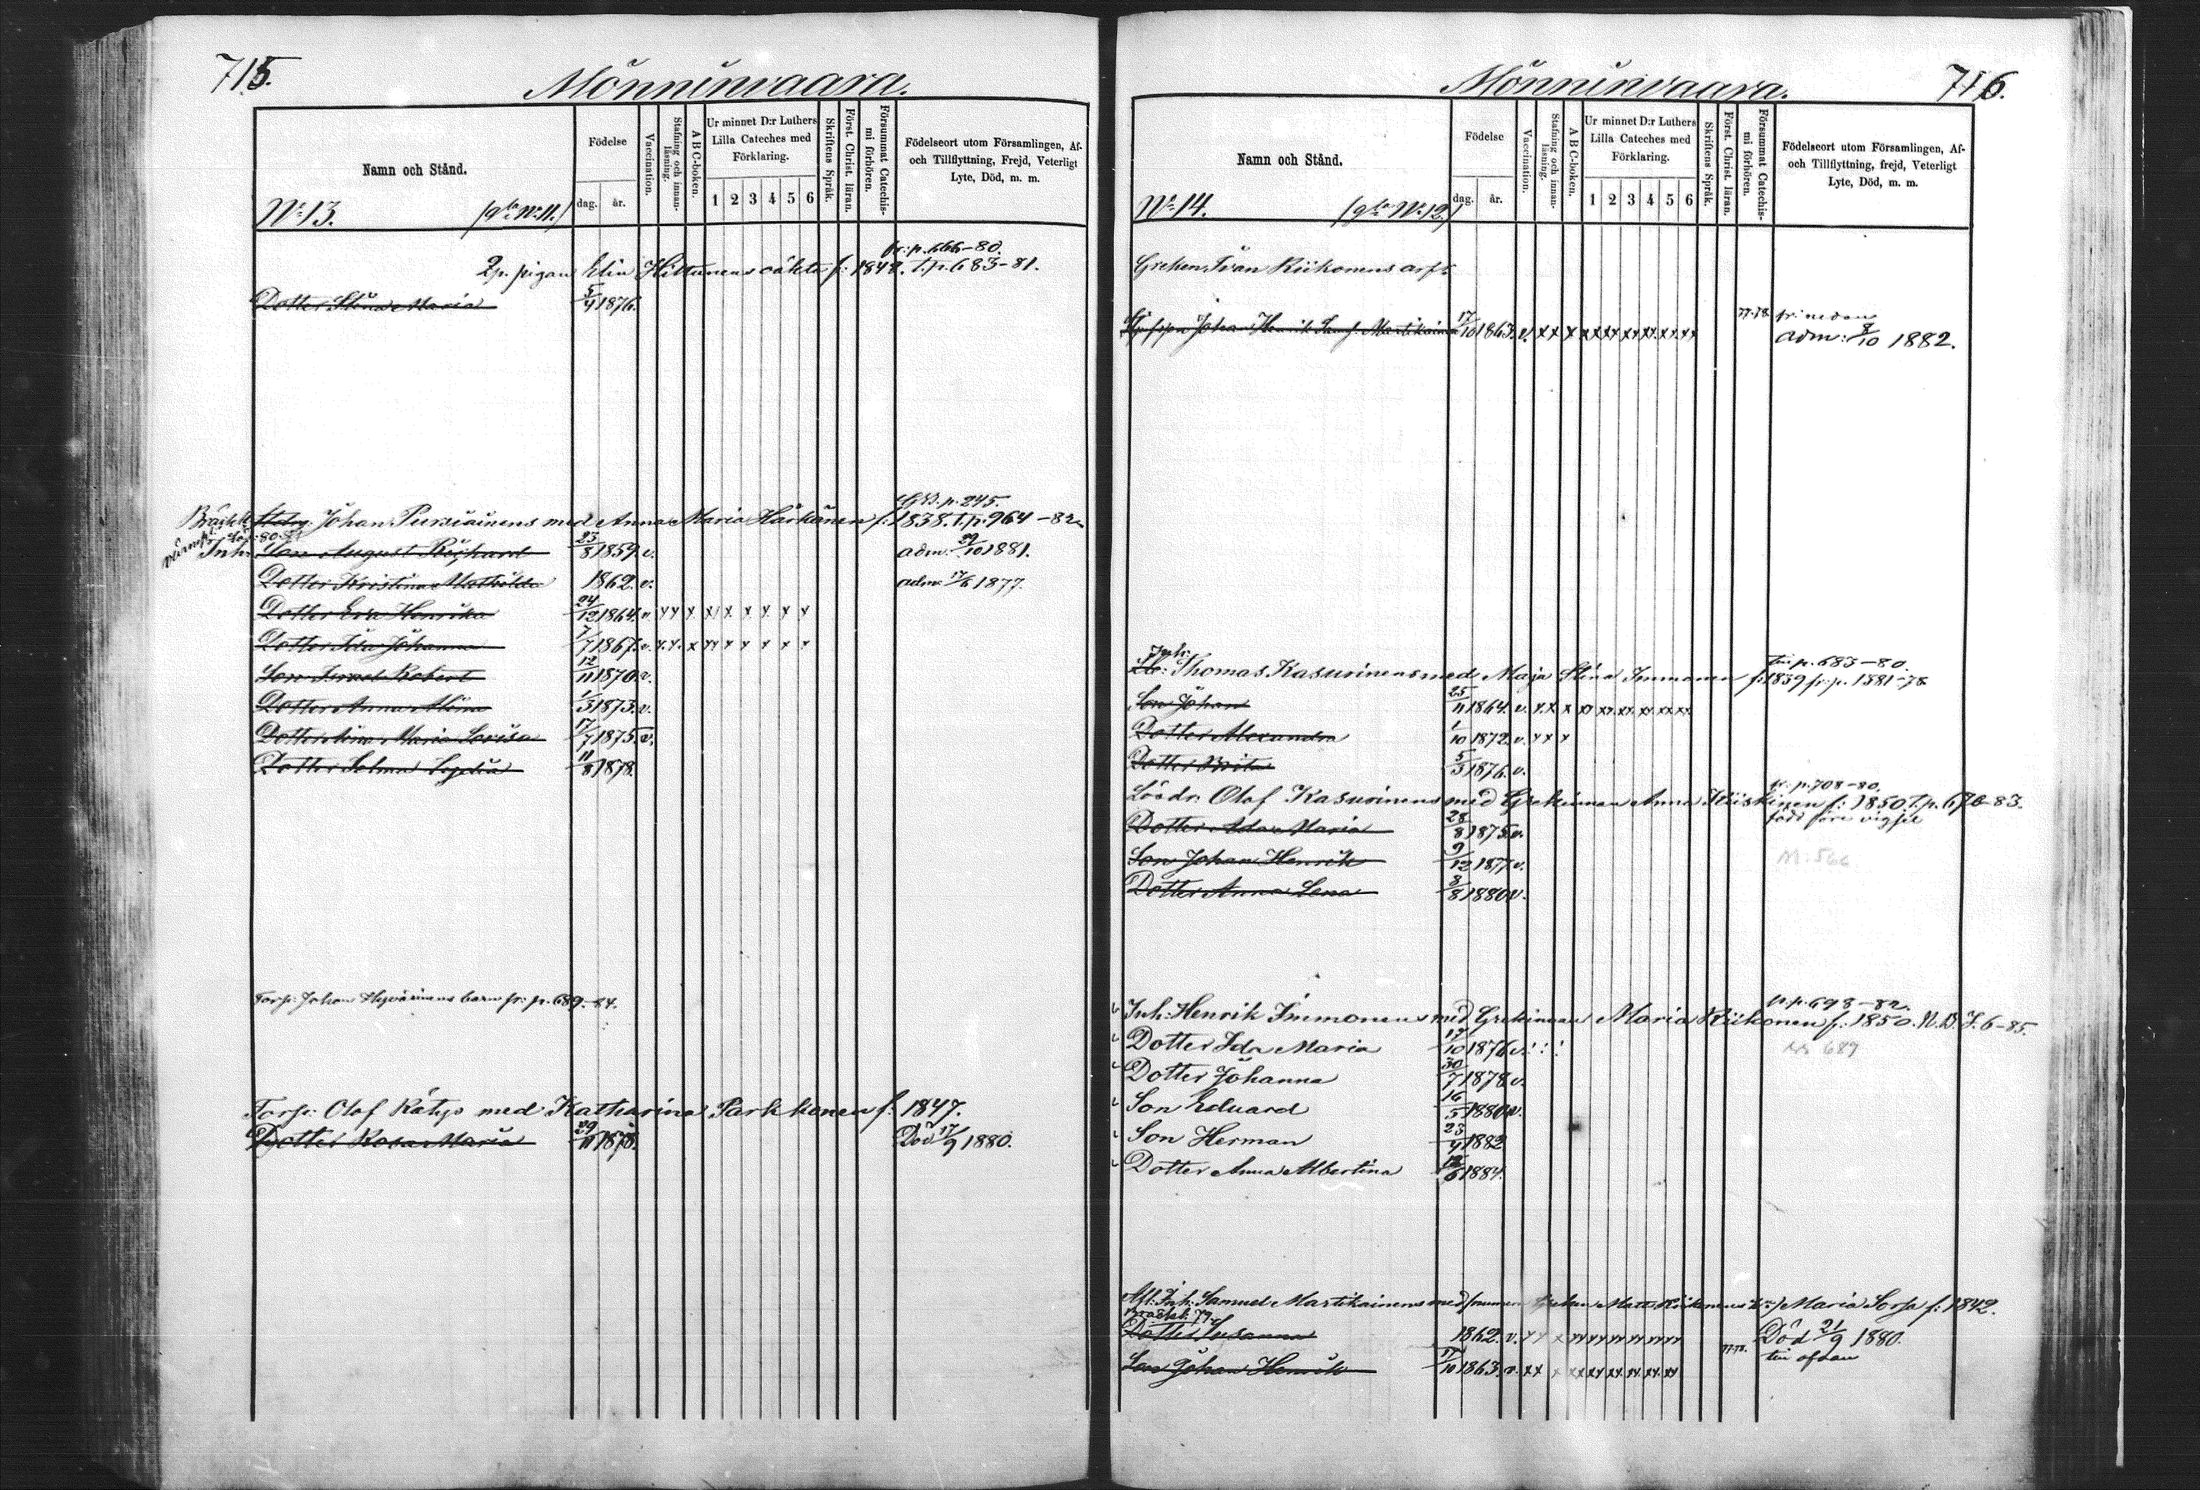 715.
Mönninvaara.
Namn och Stånd.
Födelse
dag. år.
Vaccination.
Stafning och innanläsning.
A B C-boken.
Ur minnet D:r Luthers Lilla Cateches med Förklaring.
1 2 3 4 5 6
Skriftens Språk.
Först. Christ. läran.
Försummat Catechismi förhören.
Födelseort utom Församlingen, Af- och Tillflyttning, Frejd, Veterligt Lyte, Död, m. m.
N:o 13. (g:la N:o 11.)
fr: p. 666-80.
2p. pigan Elin Hiltunens oäkta f: 1848. t.p. 683-81.
Dotter Stina Maria 5/4 1876.
p. 245.
Johan Pursiainens med Anna Maria Härkönen f: 1838. t.p. 964-82
Inh: Son August Rijhard 23/8 1859. v. adm. 29/10 1881.
Dotter Kristina Mathilda 1862. v. adm. 17/6 1877.
Dotter Eva Henrika 24/12 1864. v. x x x x x x x x x
Dotter Ida Johanna 7/7 1867. v. x x x x x x x x x
Son Israel Robert 12/11 1870. v.
Dotter Anna Alina 1/3 1873. v.
Dotter Maria Lovisa 17/7 1875. v.
Dotter Selma Lydia 11/8 1878.
Torp: Johan Hyvärinens barn fr: p. 689.-84.
Torp: Olof Rätys med Katharina Parkkonen f: 1847.
Dotter Rosa Maria 29/11 1878. Död 17/9 1880.
716.
Mönninvaara.
Namn och Stånd.
Födelse
dag. år.
Vaccination.
Stafning och innanläsning.
A B C-boken.
Ur minnet D:r Luthers Lilla Cateches med Förklaring.
1 2 3 4 5 6
Skriftens Språk.
Först. Christ. läran.
Försummat Catechismi förhören.
Födelseort utom Församlingen, Af- och Tillflyttning, frejd, Veterligt Lyte, Död, m. m.
N:o 14. (g:la N:o 12)
Greken Ivan Riikonens
77-78. fr: nedan
Johan Henrik Martikainen 17/10 1863. v. x x x xx xx xx xx xx xx adm: 8/10 1882.
Inh: till p. 683-80.
Thomas Kasurinens med Maja Stina Immonen f: 1839 fr: p. 1381-78
Son Johan 25/11 1864. v. x x x xx xx xx xx xx xx
Dotter Alexandra 1/10 1872. v. x x x
Dotter Brita 5/3 1876. v.
fr. p. 708-80.
Lösdr: Olof Kasurinens med Grekinnan Anna f: 1850. t.p. 676-83.
född före vigsel
Dotter Ada Maria 28/8 1875. v.
Son Johan Henrik 9/12 1877. v. M: 566
Dotter Anna Lena 8/8 1880 v.
fr. p. 698-82.
Inh: Henrik Immonens med Grekinnan Maria Riikonen f: 1850. N. B. I. 6-85.
Dotter Ida Maria 17/10 1876 v. 689
Dotter Johanna 30/7 1878 v.
Son Eduard 16/5 1880 v.
Son Herman 23/4 1882
Dotter Anna Albertina 12/6 1884.
Afl: Inh: Samuel Martikainens med (numera Greken Matts Riikonens h:u) Maria Sorsa f: 1842.
Dotter Susanna 1862. v. x x x xx xx xx xx xx xx Död 21/9 1880.
Son Johan Henrik 17/10 1863. v. x x x xx xx xx xx xx xx 77-78. till ofvan